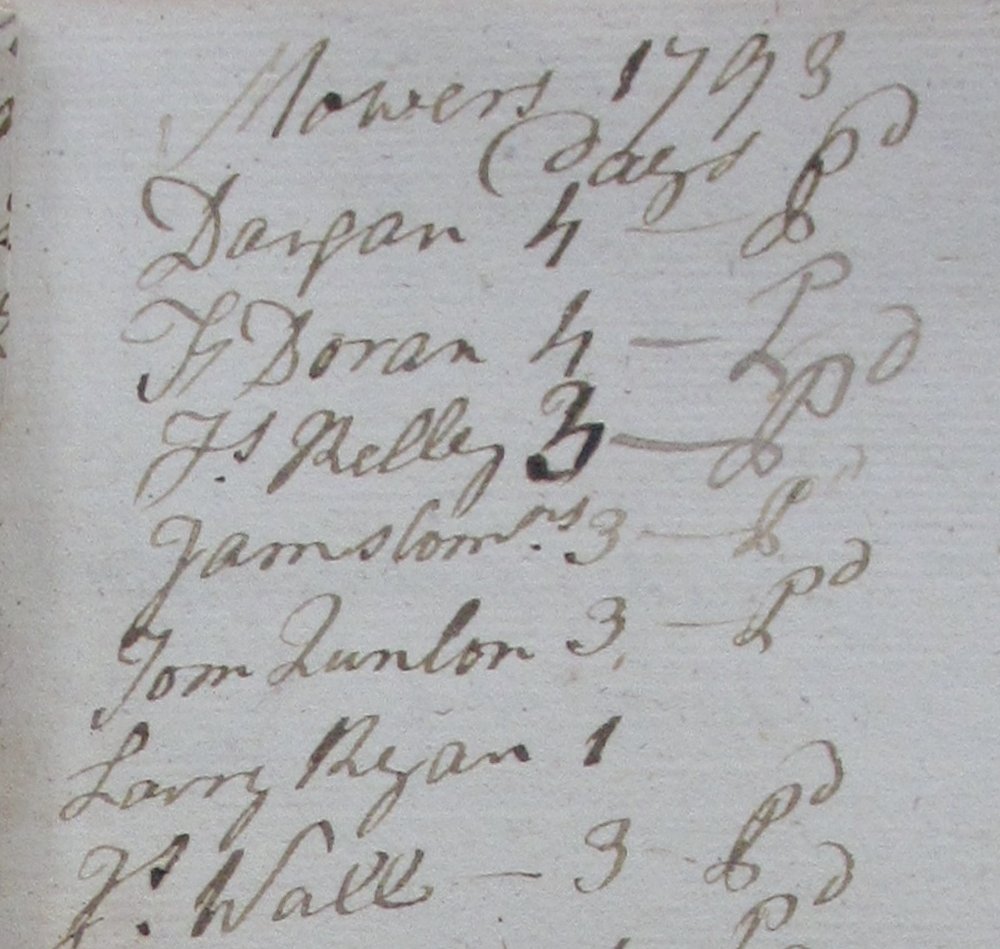 Mowers 1793
Days
Dargan 4 — Pd
Doran 4 — Pd
Js. Kelley 3 — Pd
3 — Pd
Tom Qunlon 3 — Pd
Larry Ryan 1
Js. Wall — 3 — Pd
Pd